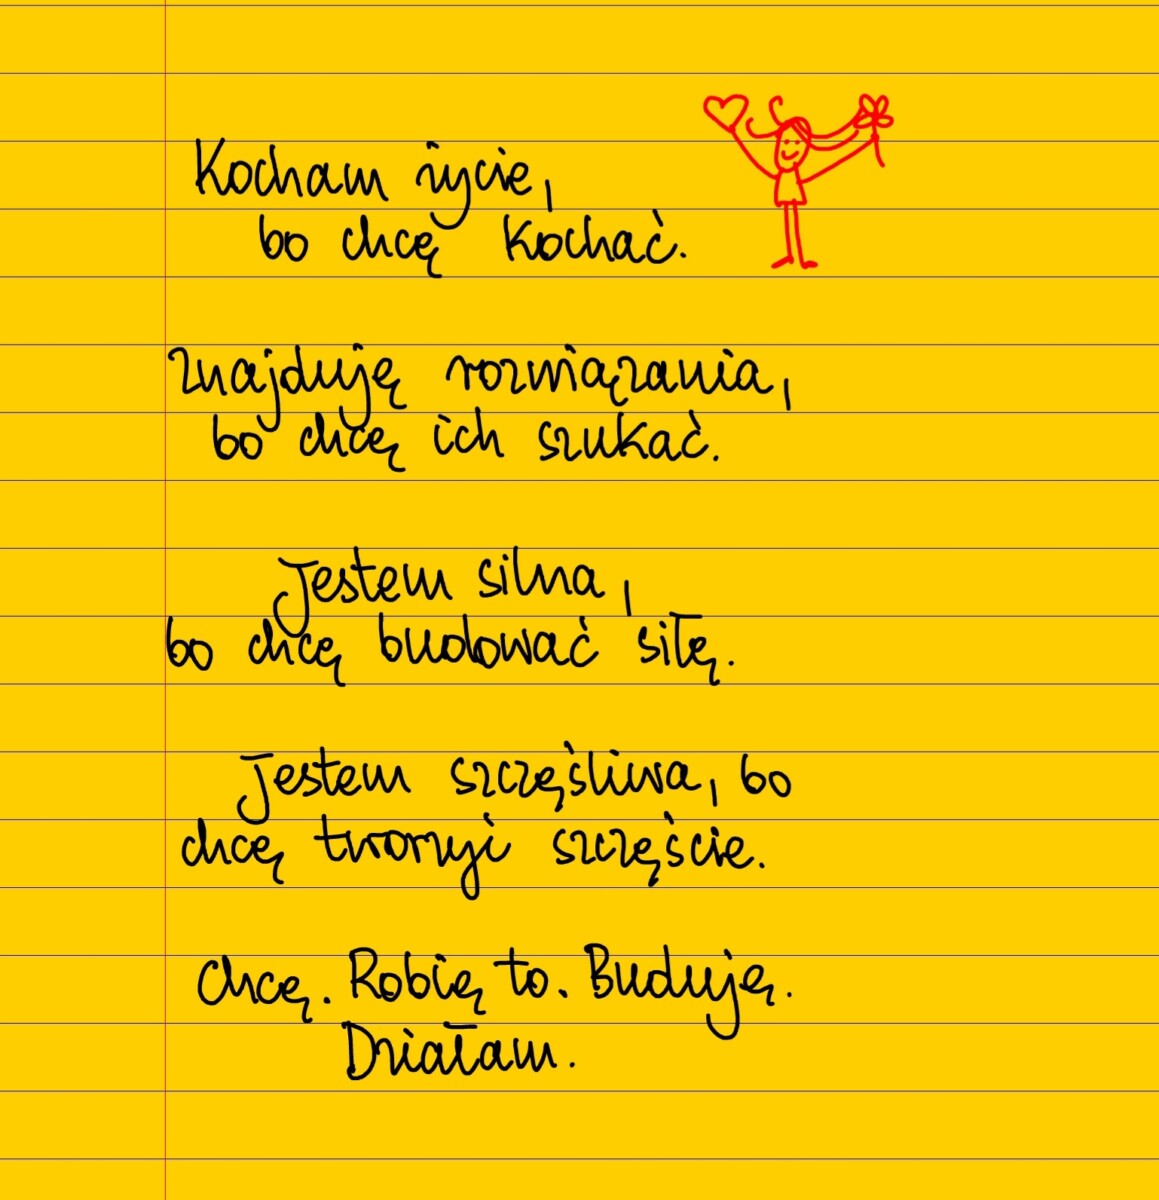 Kocham życie,
bo chcę kochać.
Znajduję rozwiązania,
bo chcę ich szukać.
Jestem silna,
bo chcę budować siłę.
Jestem szczęśliwa, bo
chcę tworzyć szczęście.
Chcę. Robię to. Buduję.
Działam.